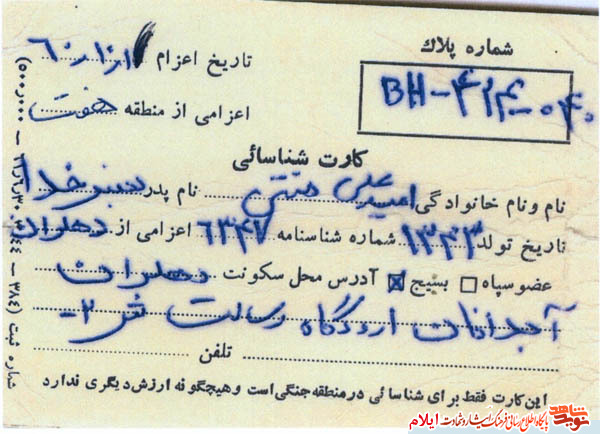 شماره پلاك
BH-۴۲۴-۰۴۰
تاریخ اعزام
اعزامی از منطقه هفت
کارت شناسائی
نام و نام خانوادگی امید علی نام پدر
تاریخ تولد ۱۳۴۳ شماره شناسنامه ۶۳۴۷ اعزامی از دهلران
عضو سپاه بسیج آدرس محل سکونت دهلران
اردوگاه رسالت ش ۲-
تلفن
این کارت فقط برای شناسائی در منطقه جنگی است و هیچگونه ارزش دیگری ندارد
شماره ثبت
نوید شاهد پایگاه اطلاع رسانی فرهنگ ایثار و شهادت ایلام